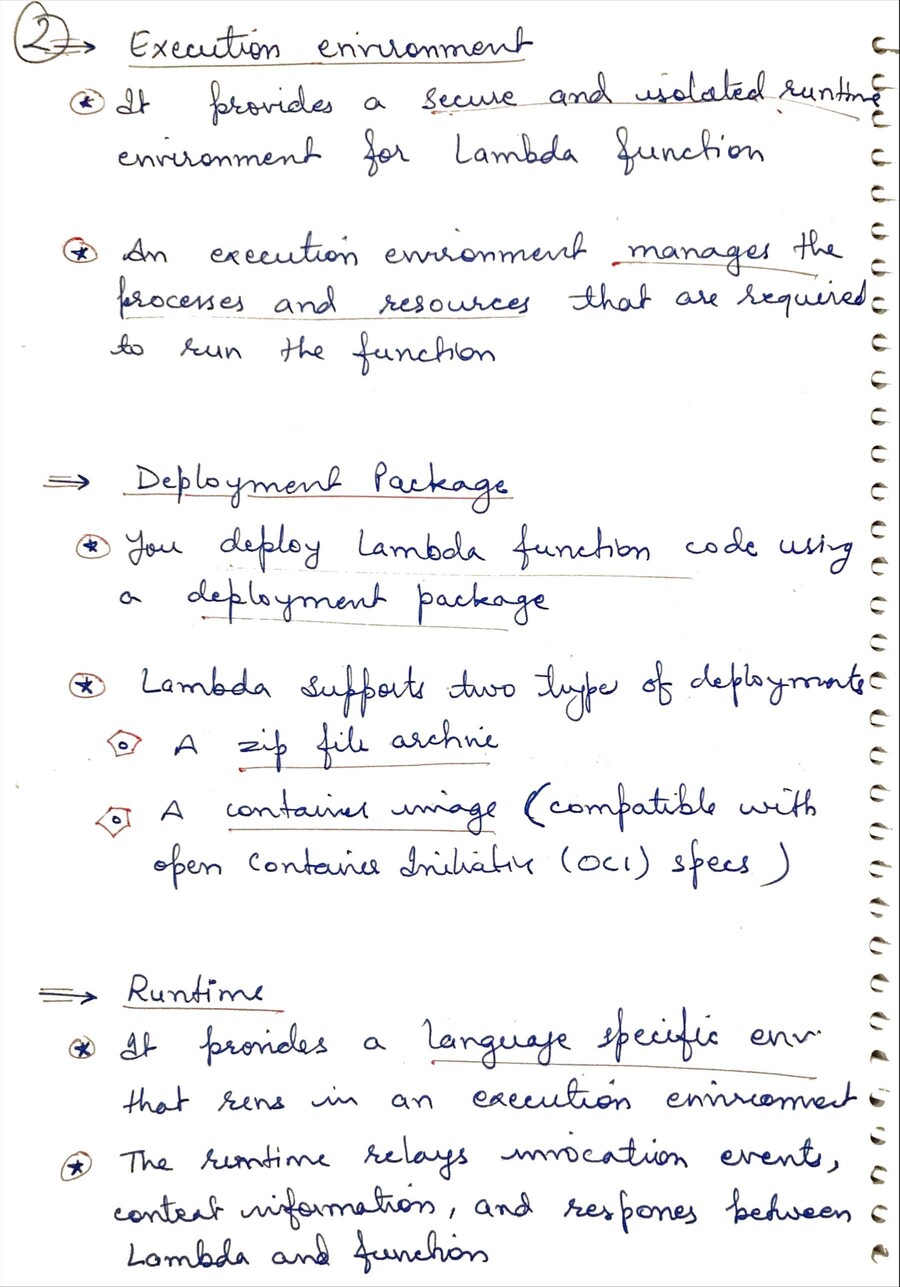 ② ⇒ Execution environment
⊛ It provides a secure and isolated runtime
environment for Lambda function
⊛ An execution environment manages the
processes and resources that are required
to run the function
⇒ Deployment Package
⊛ You deploy Lambda function code using
a deployment package
⊛ Lambda supports two type of deployments
A zip file archive
A container image (compatible with
open container Initiative (OCI) specs)
⇒ Runtime
⊛ It provides a language specific env.
that runs in an execution environment
⊛ The runtime relays invocation events,
context information, and respones between
Lambda and function